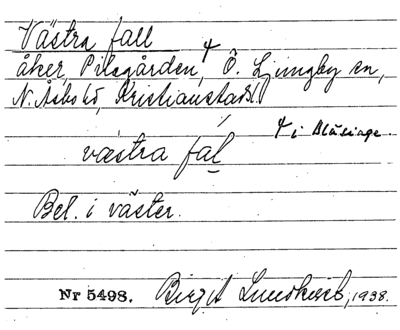 Västra fall
åker, Pilagården, Ö. Ljungby sn,
N. Åsbo hd, Kristianstads l.
i Blåsinge.
västra fal
Bel. i väster.
Nr 5498. Birgit Lundkvist, 1938.